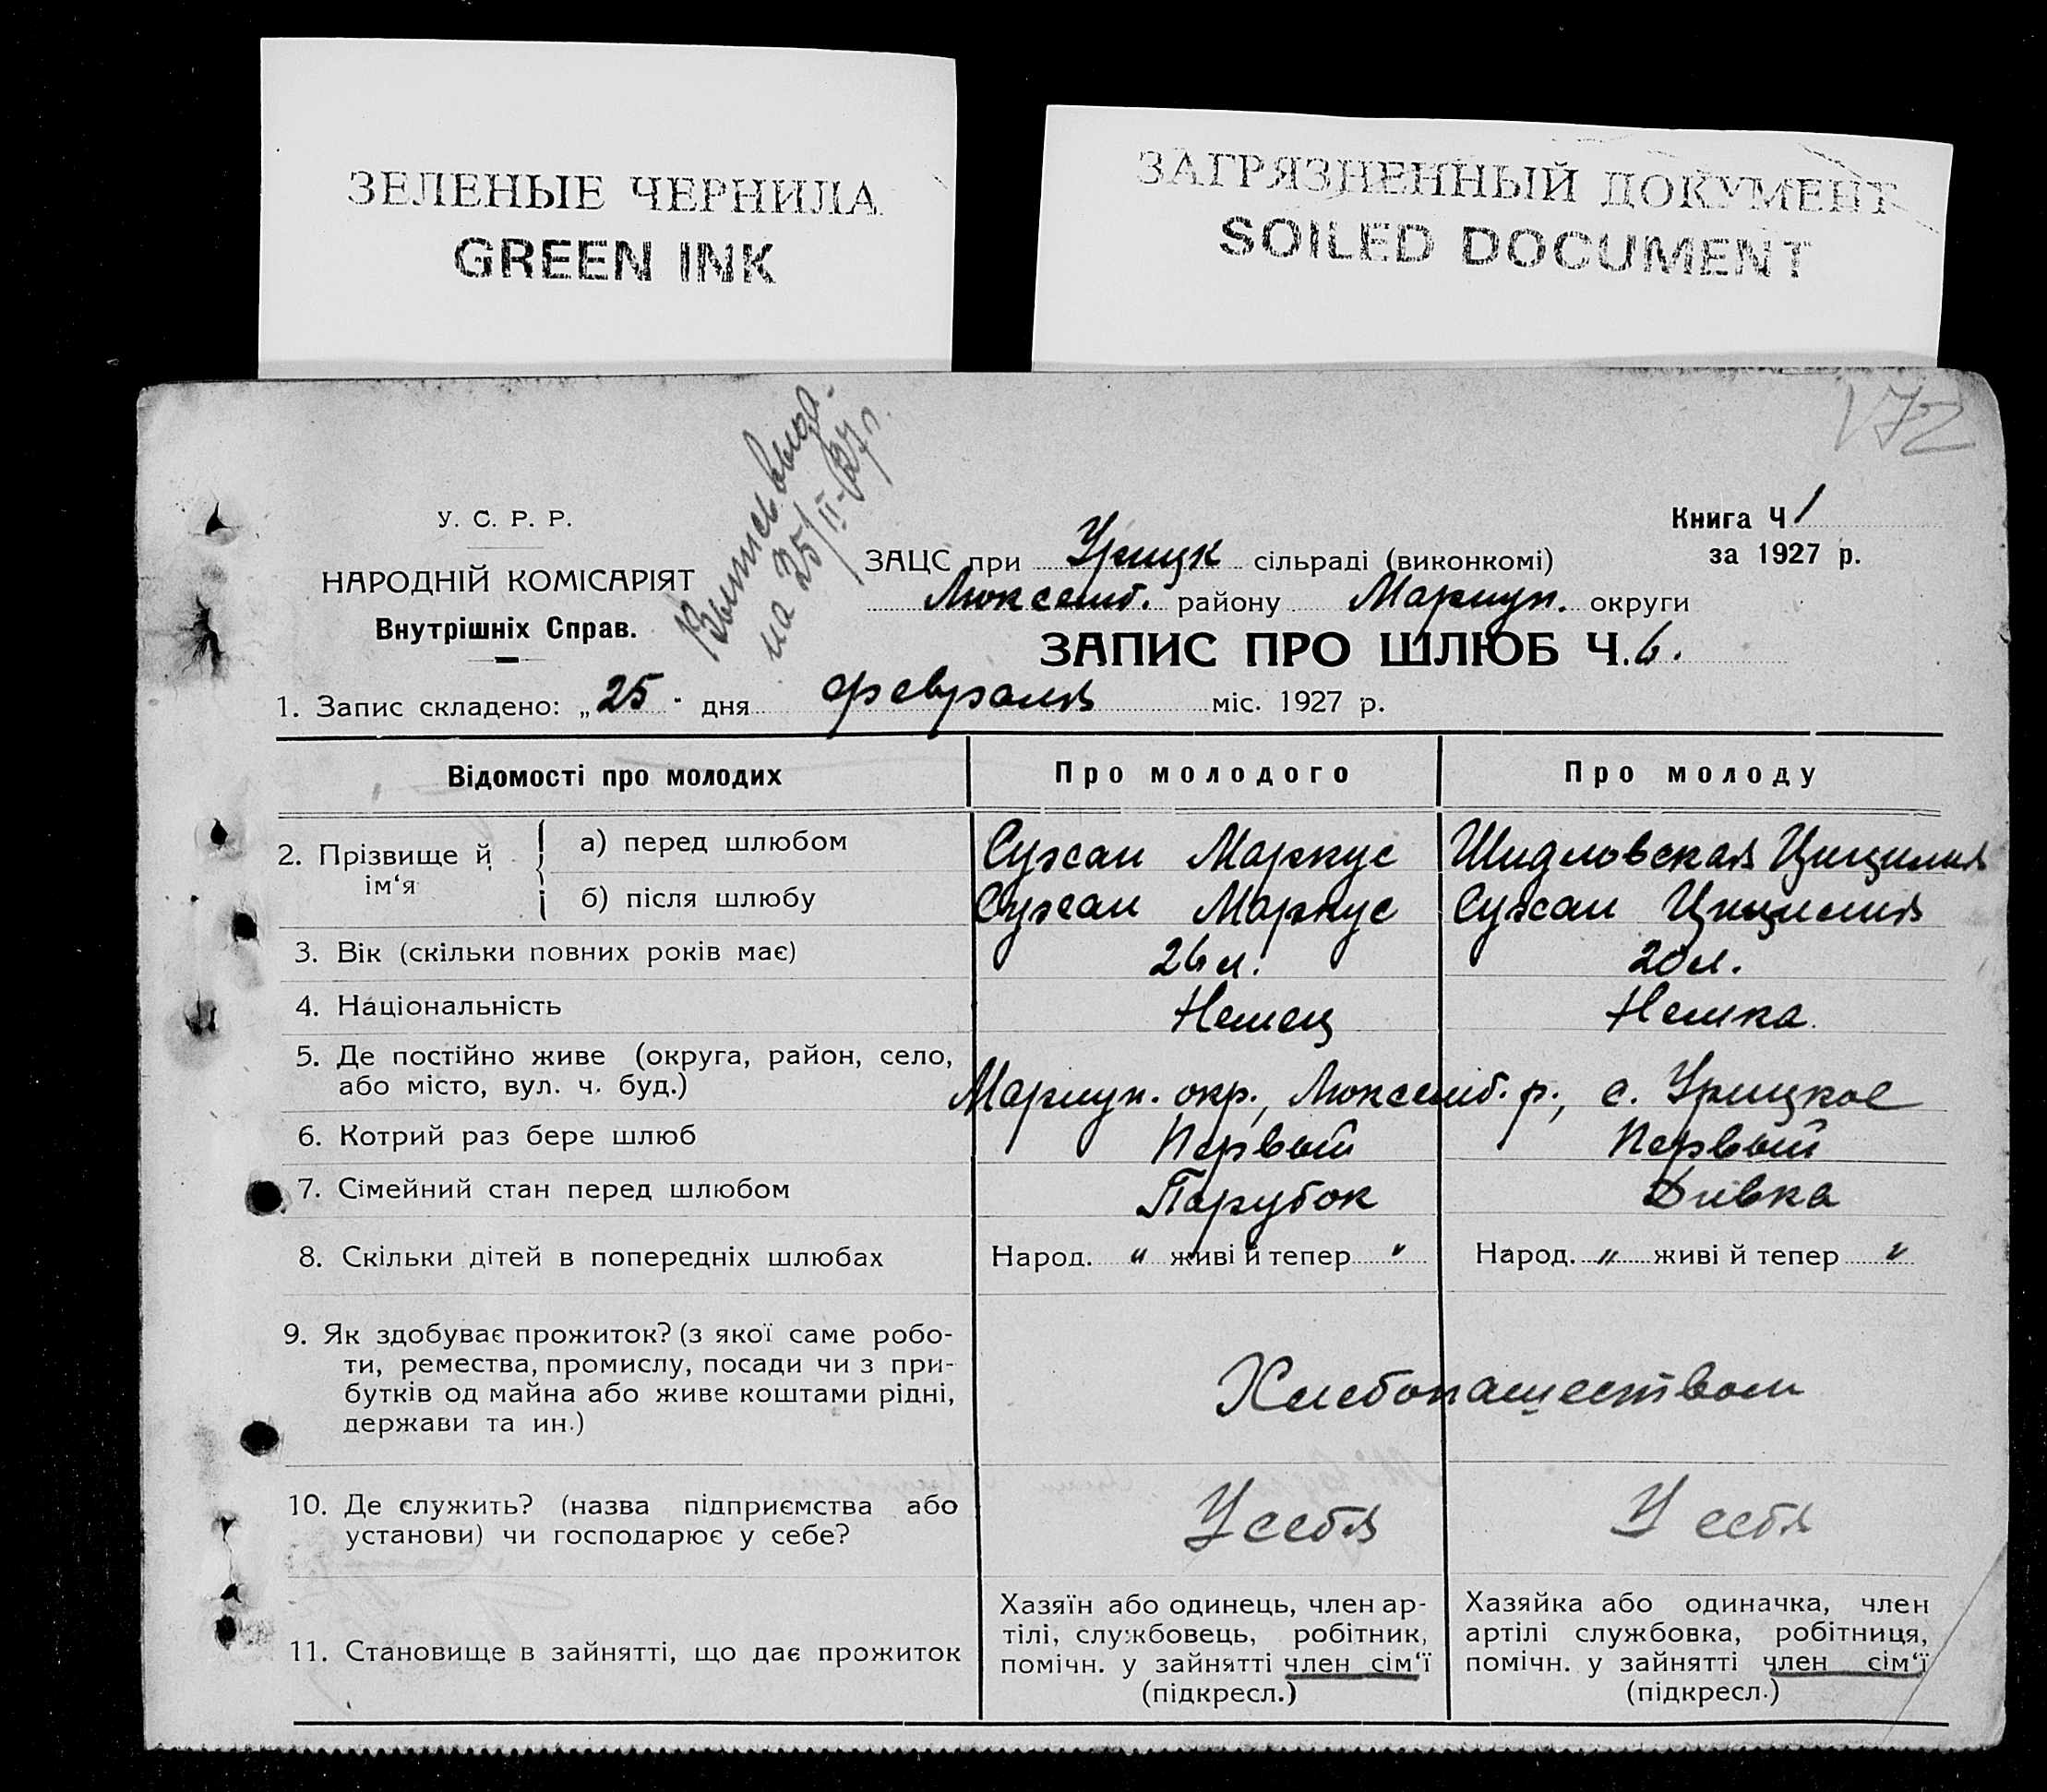 ЗЕЛЕНЫЕ ЧЕРНИЛА
GREEN INK
ЗАГРЯЗНЕННЫЙ ДОКУМЕНТ
SOILED DOCUMENT
172
Выпись выда-
на 25/II-27 г.
У. С. Р. Р.
НАРОДНІЙ КОМІСАРІЯТ
Внутрішніх Справ.
Книга Ч 1
за 1927 р.
ЗАЦС при Урицк сільраді (виконкомі)
Люксемб. району Мариуп. округи
ЗАПИС ПРО ШЛЮБ Ч. 6.
1. Запис складено: „25" дня февраля міс. 1927 р.
Відомості про молодих Про молодого Про молоду
2. Прізвище й ім‘я
а) перед шлюбом Сужан Маркус Шидловская Цицилия
б) після шлюбу Сужан Маркус Сужан Цицилия
3. Вік (скільки повних років має) 26 л. 20 л.
4. Національність Немец Немка.
5. Де постійно живе (округа, район, село,
або місто, вул. ч. буд.) Мариуп. окр., Люксемб. р., с. Урицкое
6. Котрий раз бере шлюб Первый Первый
7. Сімейний стан перед шлюбом Парубок Дивка
8. Скільки дітей в попередніх шлюбах Народ. " живі й тепер " Народ. " живі й тепер "
9. Як здобуває прожиток? (з якої саме робо-
ти, ремества, промислу, посади чи з при-
бутків од майна або живе коштами рідні,
держави та ин.)
Хлебопашеством
10. Де служить? (назва підприємства або
установи) чи господарює у себе?
У себя У себя
11. Становище в зайнятті, що дає прожиток
Хазяїн або одинець, член ар-
тілі, службовець, робітник,
помічн. у зайнятті член сім‘ї
(підкресл.)
Хазяйка або одиначка, член
артілі службовка, робітниця,
помічн. у зайнятті член сім‘ї
(підкресл.)